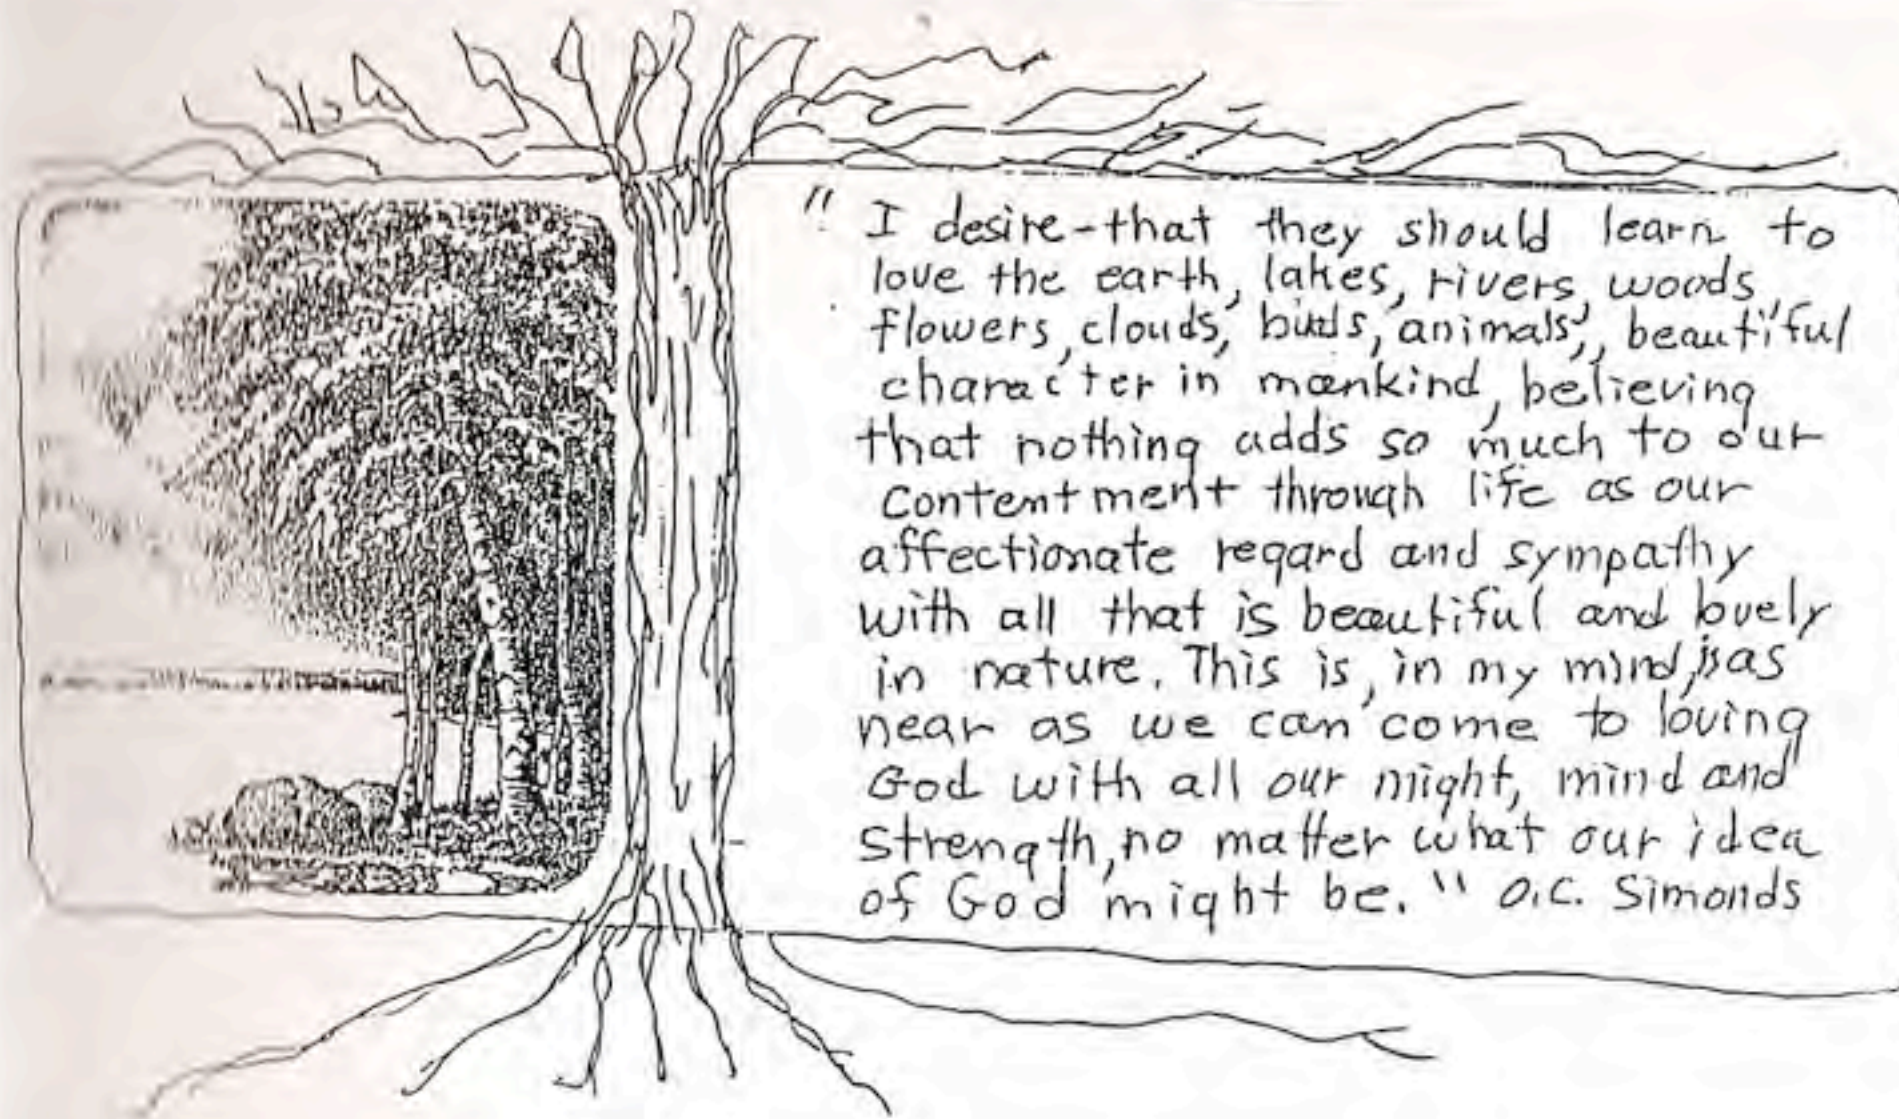 " I desire-that they should learn to
love the earth, lakes, rivers, woods,
flowers, clouds, birds, animals, beautiful
character in mankind, believing
that nothing adds so much to our
contentment through life as our
affectionate regard and sympathy
with all that is beautiful and lovely
in nature. This is, in my mind, is as
near as we can come to loving
God with all our might, mind and
strength, no matter what our idea
of God might be. " O.C. Simonds